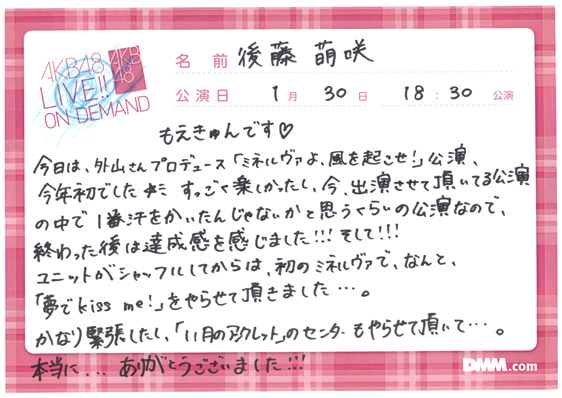 AKB48
LIVE!!
ON DEMAND
AKB
48
名前 後藤 萌咲
公演日 1月 30日 18:30 公演
もえきゅんです♡
今日は、外山さんプロデュース「ミネルヴァよ、風を起こせ!」公演、
今年初でした すっごく楽しかったし、今、出演させて頂いてる公演
の中で1番汗をかいたんじゃないかと思うくらいの公演なので、
終わった後は達成感を感じました!!! そして!!!
ユニットがシャッフルしてからは、初のミネルヴァで、なんと、
「夢でkiss me!」をやらせて頂きました…。
かなり緊張したし、「11月のアンクレット」のセンターもやらせて頂いて…。
本当に... ありがとうございました!!!
DMM.com